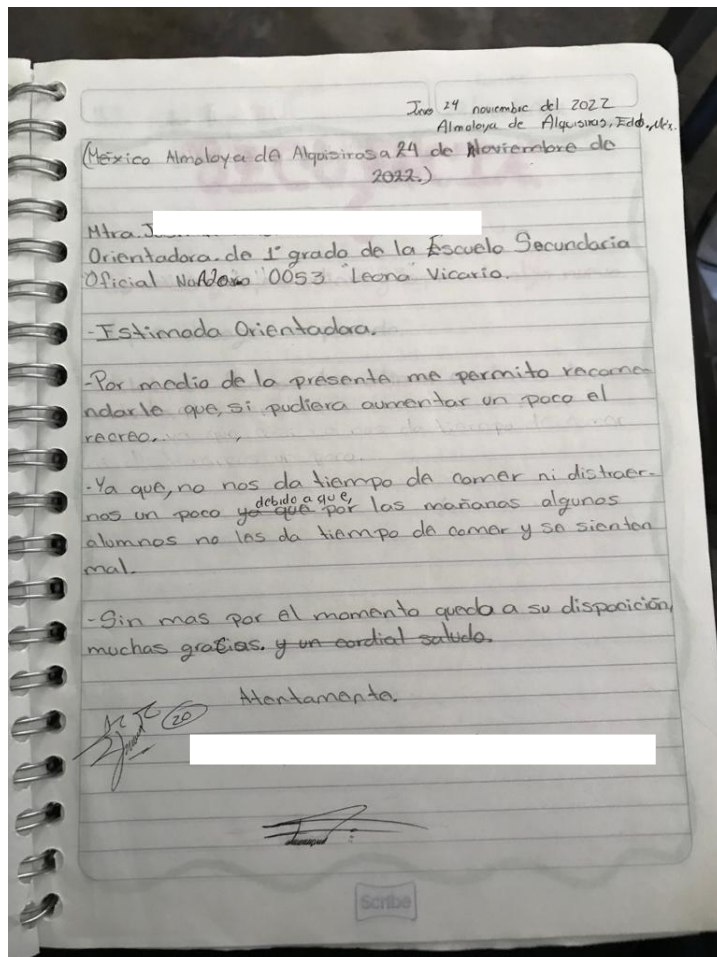 24 noviembre del 2022
Almoloya de Alquisiras, Edo. Méx.
(México Almoloya de Alquisirasa 24 de Noviembre de
2022.)
Mtra. J
Orientadora de 1° grado de la Escuelo Secundaria
Oficial 0053 "Leona" Vicario.
-Estimada Orientadora.
-Por medio de la presente me permito recome-
ndarle que, si pudiera aumentar un poco el
recreo.
-Ya que, no nos da tiempo de comer ni distraer-
debido a que,
nos un poco ya que por las mañanas algunos
alumnos no les da tiempo de comer y se sienten
mal.
-Sin mas por el momento queda a su disposición,
muchas gracias. y un cordial saludo.
Atentamente.
20
Scribe